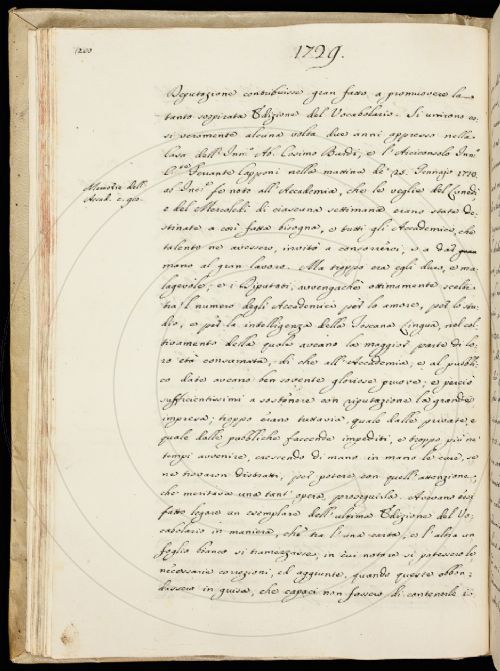 1729.
Deputazione contribuisse gran fatto, a promuovere la
tanto sospirata Edizione del Vocabolario. Si unirono co-
sì veramente alcuna volta due anni appresso nella
Casa dell' Inn.º Ab. Cosimo Bardi, e l'Arciconsolo Inn.º
Ferrante Capponi nella mattina de' 28. Gennajo 1710.
ab Inc.º fe noto all'Accademia, che le veglie del Lunedì,
e del Mercoledì di ciascuna settimana erano state de-
stinate a così fatta bisogna, e tutti gli Accademici, che
talento ne avessero, invitò a concorrerci, e a dar
mano al gran lavoro. Ma troppo era egli duro, e ma-
lagevole; e i Deputati, avvengachè ottimamente scelti
tra 'l numero degli Accademici per lo amore, per lo stu-
dio, e per la intelligenza della Toscana Lingua, nel col-
tivamento della quale aveano la maggior parte di lo-
ro età consumata, di che all'Accademia, e al pubbli-
co date aveano ben sovente gloriose pruove, e perciò
sufficientissimi a sostenere con riputazione la grande
impresa; troppo erano tuttavia, quale dalle private, e
quale dalle pubbliche faccende impediti, e troppo più ne'
tempi avvenire, crescendo di mano in mano le cure, se
ne trovaron distratti, per potere con quell'attenzione,
che meritava una tant'opera, proseguirla. Aveano essi
fatto legare un esemplare dell'ultima Edizione del Vo-
cabolario in maniera, che tra l'una carta, e l'altra un
foglio bianco si tramezzasse, in cui notare si potessero le
necessarie correzioni, ed aggiunte, quando queste abbon-
dassero in guisa, che capaci non fossero di contenerle i
Memorie dell'
Accad. c. 910.